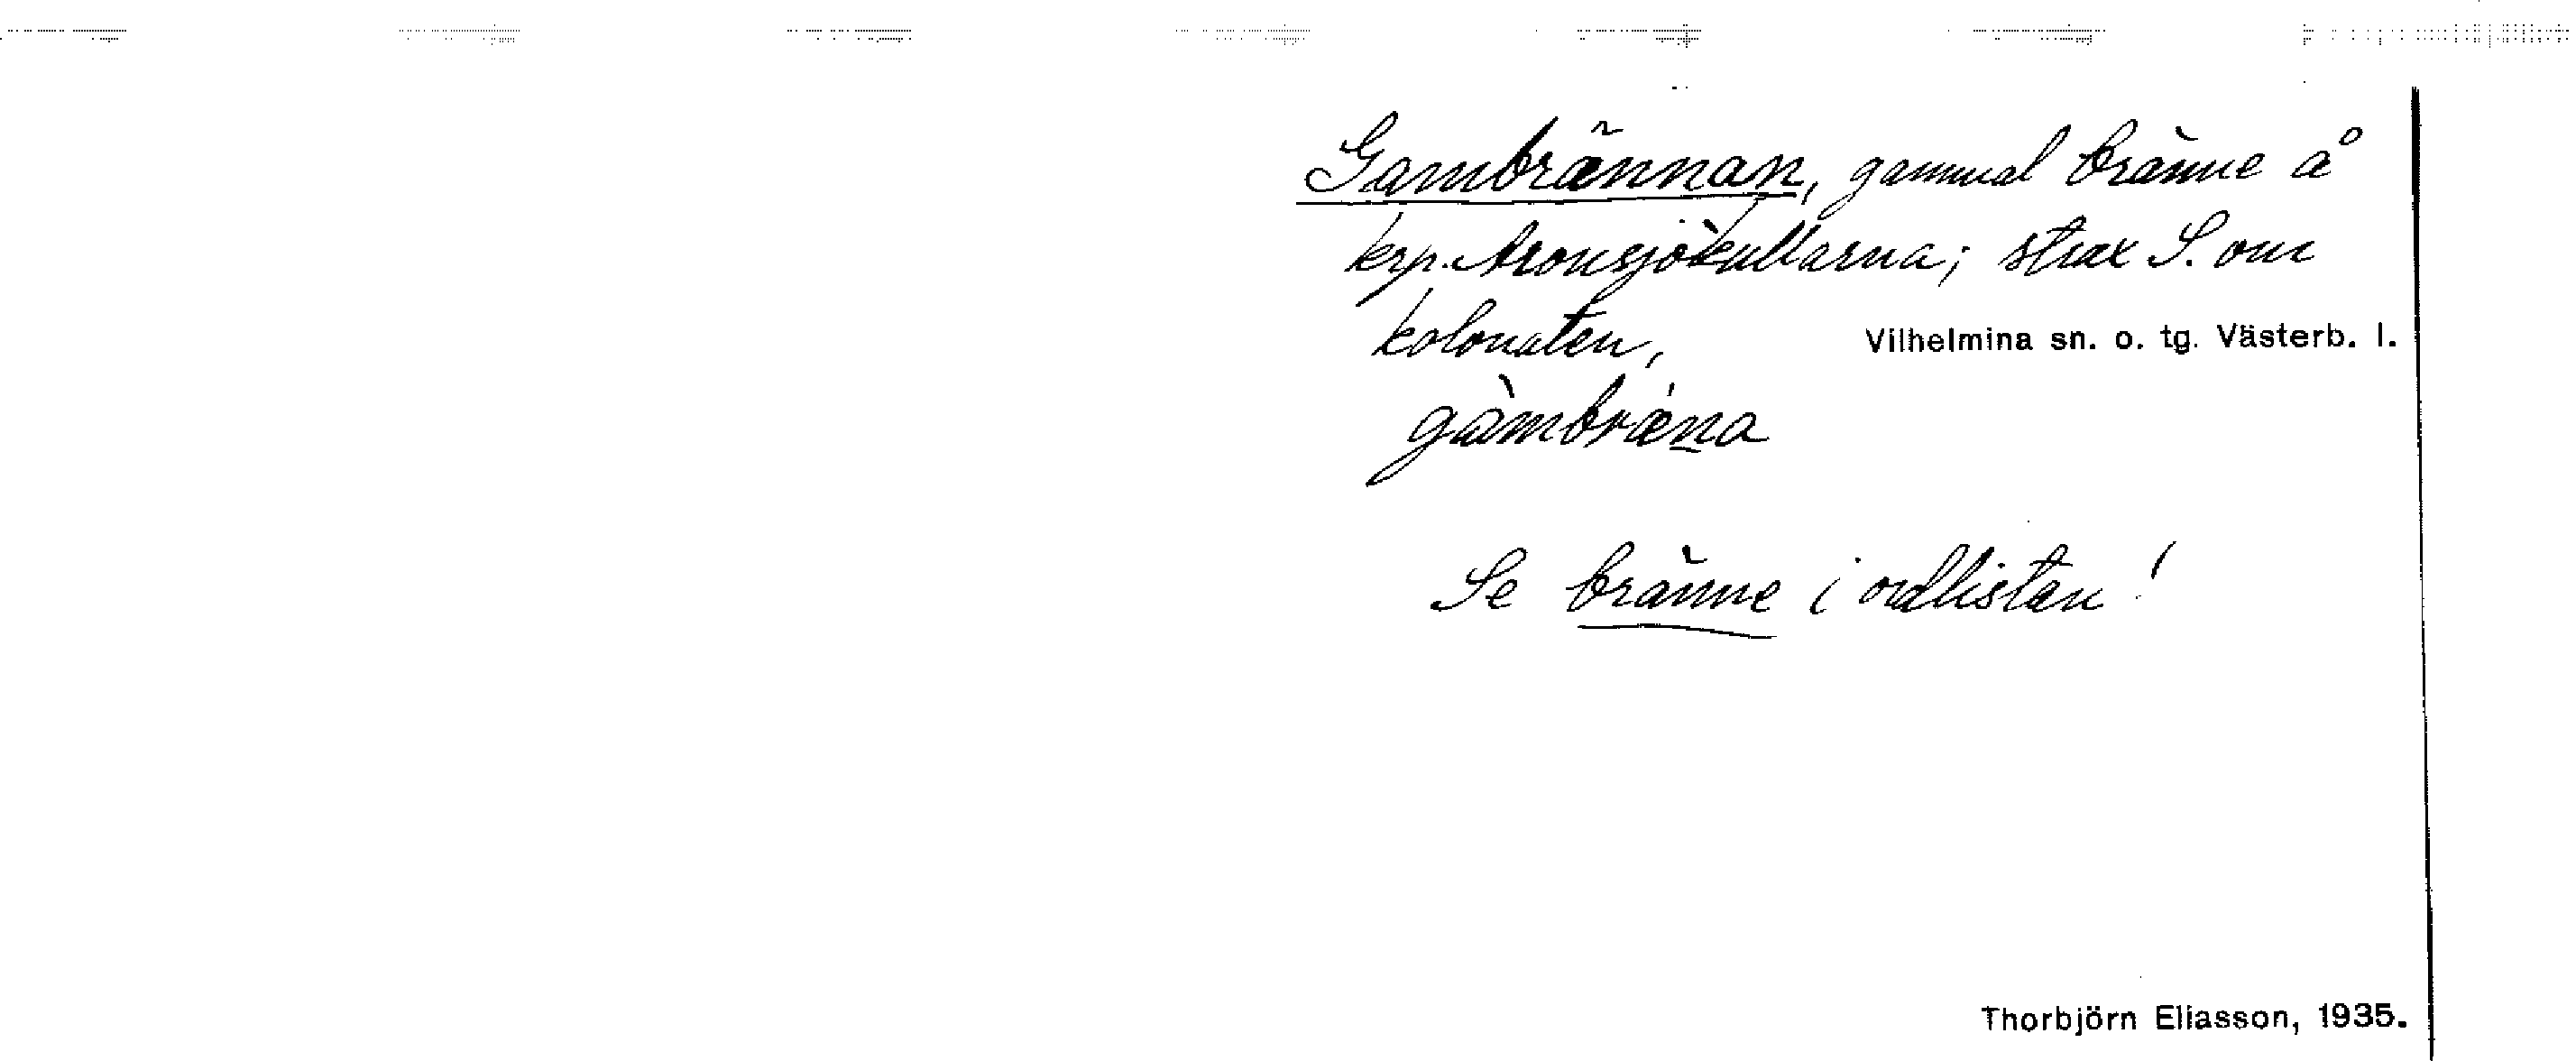 Gambrännan, gammal bränne å
krp. Aronsjökullarna; strax S. om
kolonaten, Vilhelmina sn. o. tg. Västerb. l.
gàmbrǽna
Se bränne i ordlistan!
Thorbjörn Eliasson, 1935.